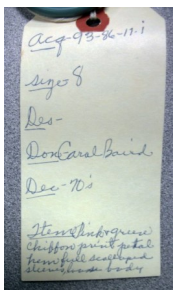 Acq-93-86-17-i
size-8
Des-
Don Carol Baird
Dec-70's
Item: Pink & green
chiffon print petal
hem full
sleeves, body